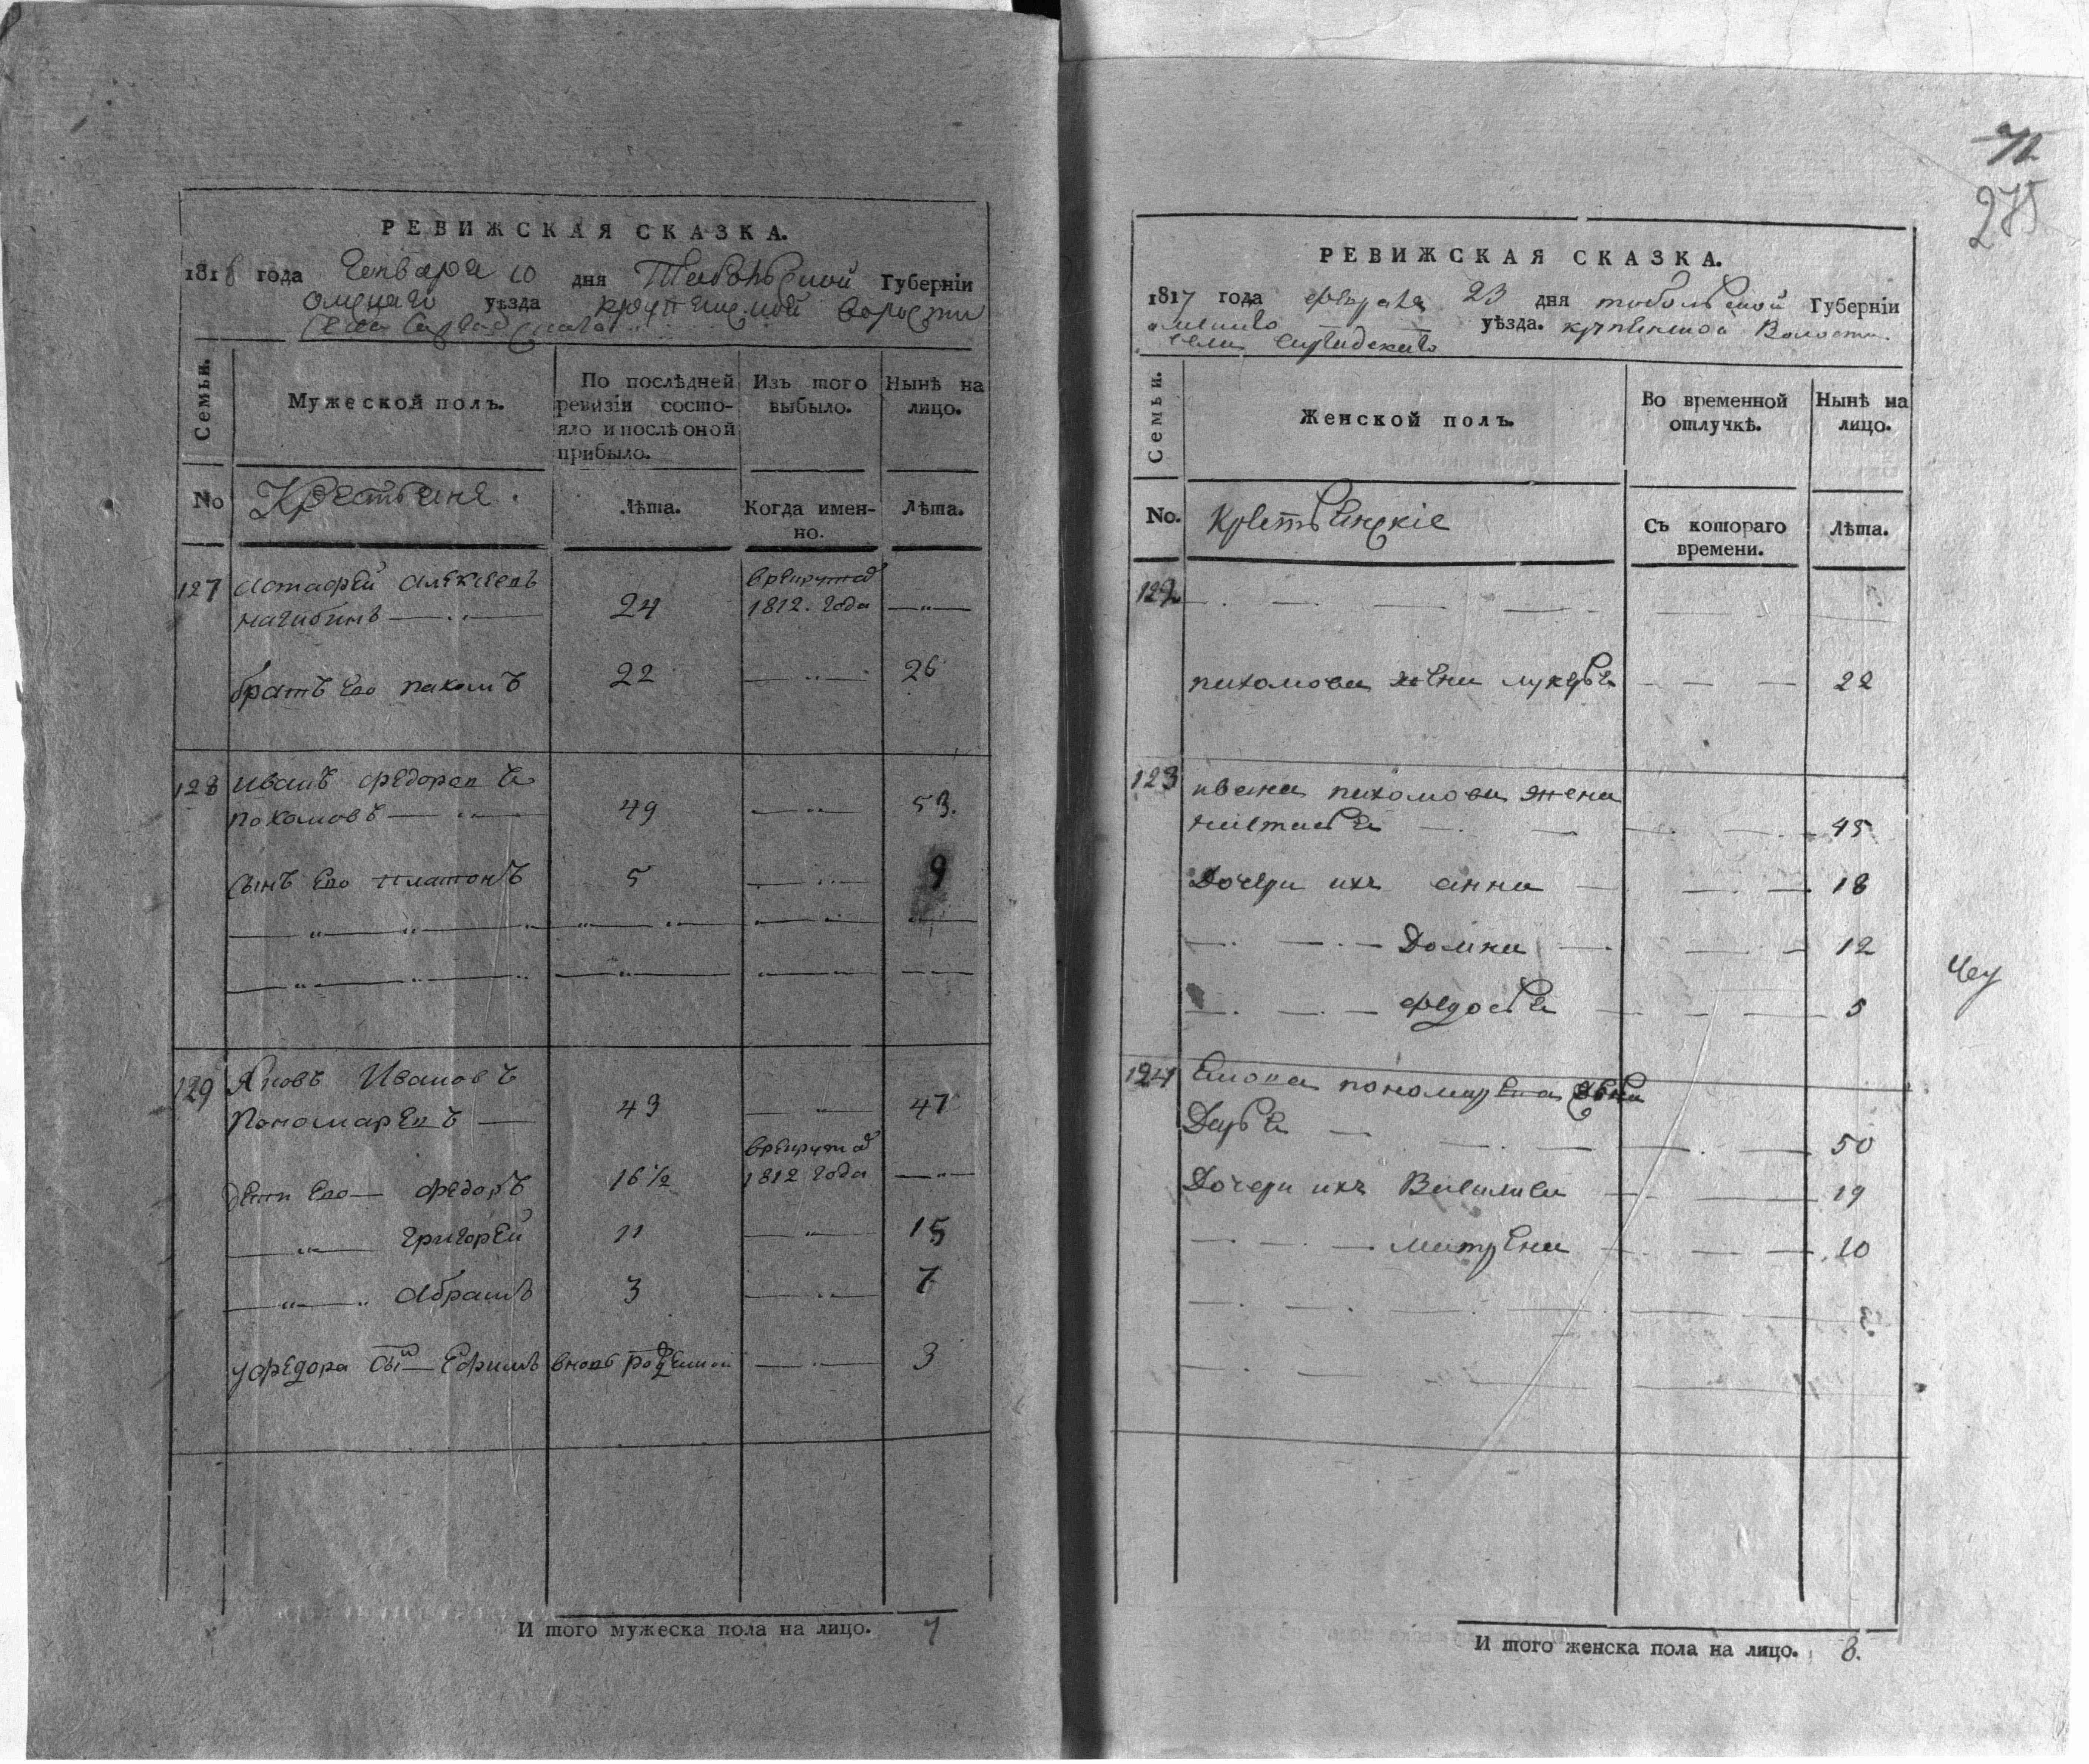 РЕВИЖСКАЯ СКАЗКА.
1816 года Генваря 10 дня Тобольской Губерніи
Омскаго уѣзда крутинской волости
Семьи. Мужеской полъ. По послѣдней ревизіи состояло и послѣ оной прибыло. Изъ того выбыло. Нынѣ на лицо.
No Крестьяне. Лѣта. Когда именно. Лѣта.
127 Астафей Алексеевъ в рекруты
нагибинъ — 24 1812. года —
братъ Его пахомъ 22 — 26
128 Иванъ Федоровъ
пахомовъ — 49 — 53.
Сынъ Его платонъ 5 — 9
129 Яковъ Ивановъ
Пономаревъ — 43 — 47
в рекруты
дети Его — Федоръ 16½ 1812 года —
— Григорей 11 — 15
— Абрамъ 3 — 7
у Федора сынъ Ефимъ вновь рожденной — 3
И того мужеска пола на лицо. 7
71
275
РЕВИЖСКАЯ СКАЗКА.
1817 года февраля 23 дня тобольской Губерніи
омского уѣзда. Волости.
села
Семьи. Женской полъ. Во временной отлучкѣ. Нынѣ на лицо.
No. Крестьянскіе Съ котораго времени. Лѣта.
122
пахомова жена лукерья — 22
123 ивана пахомова жена
настасья — 45
Дочери ихъ анна — 18
— Домна — 12
— федосья — 5
124 пономарева жена
Дарья — 50
Дочери ихъ Василиса — 19
— матрена — 10
И того женска пола на лицо. 8.